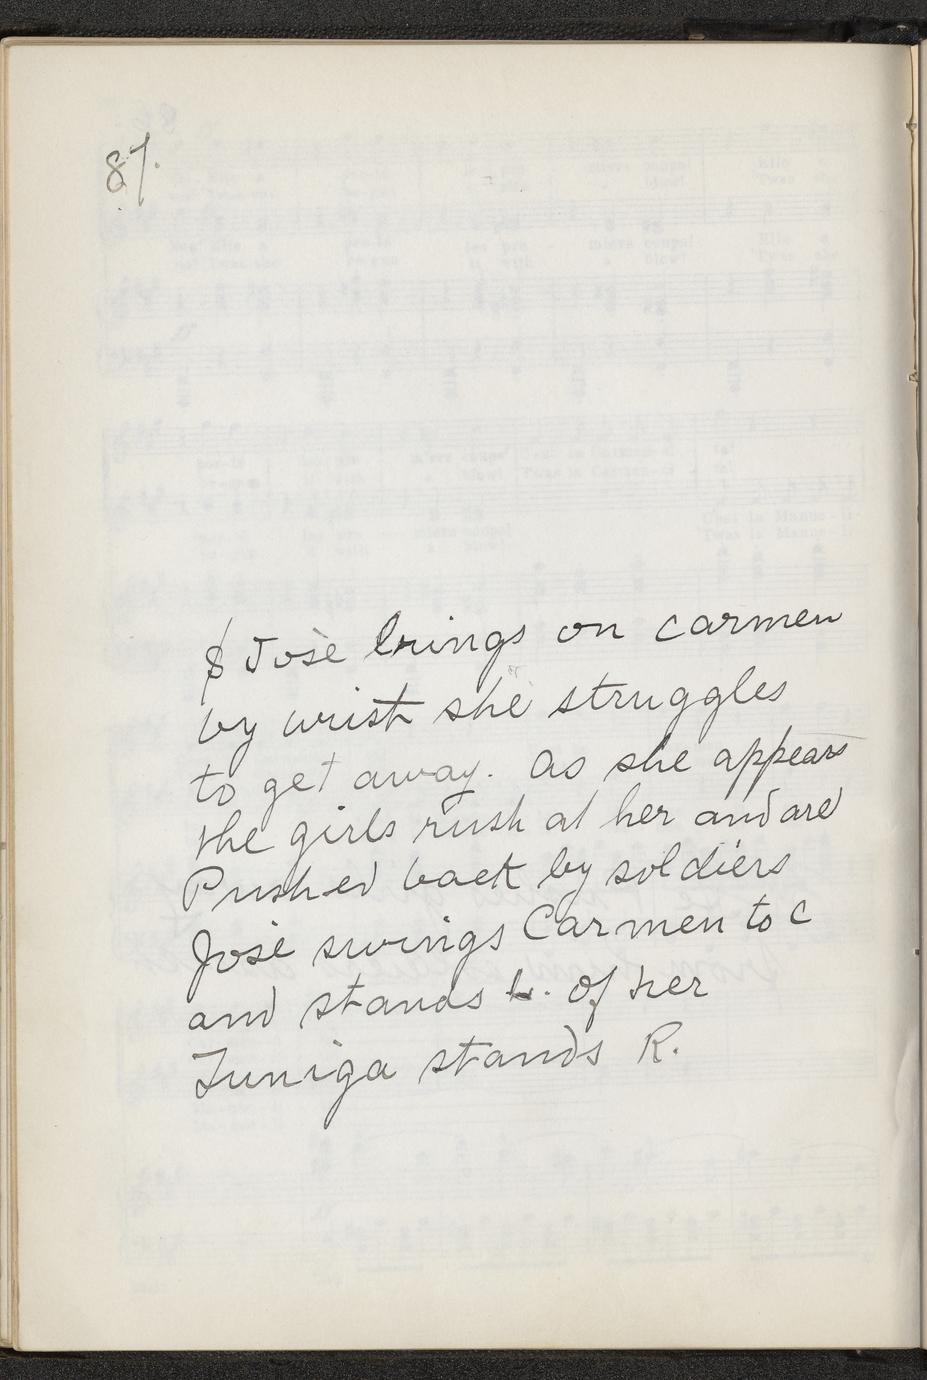 87.
$ José brings on carmen
by wrist she struggles
to get away. as she appears
the girls rush at her and are
Pushed back by soldiers
José swings Carmen to C
and stands L. of her
Zuniga stands R.